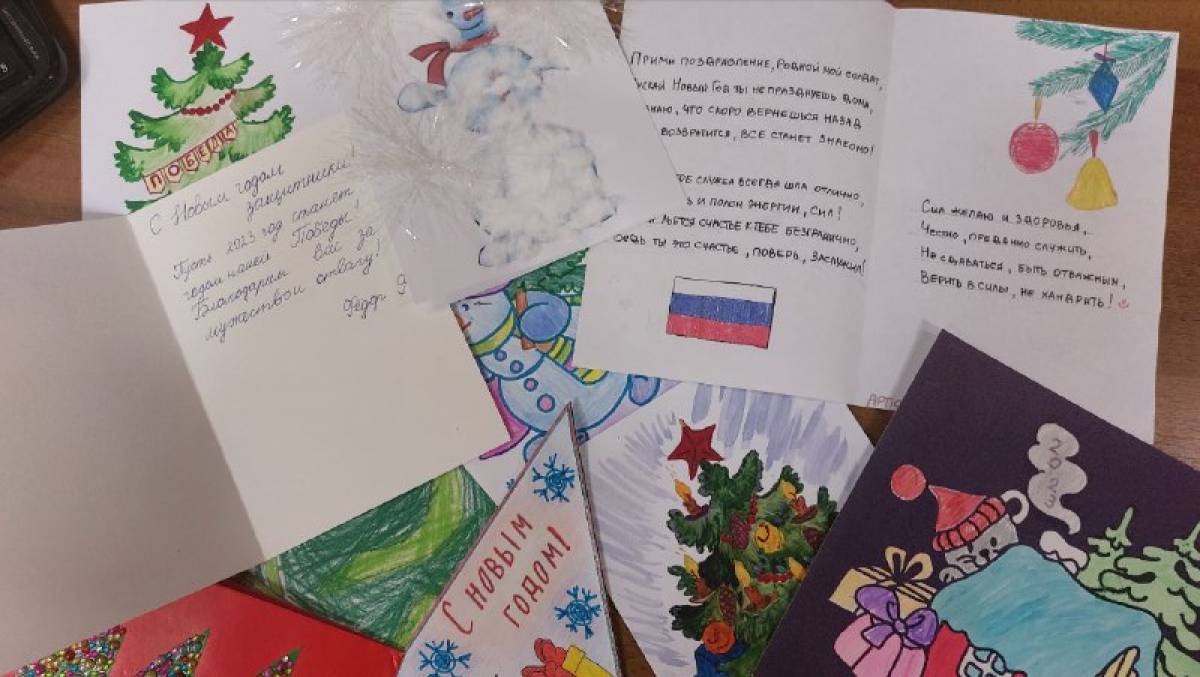 ПОБЕДА
С Новым годом
защитники!
Пусть 2023 год станет
годом нашей Победы!
Благодарим Вас за
мужество и отвагу!
Фёдр
ПРИМИ ПОЗДРАВЛЕНИЕ, РОДНОЙ МОЙ СОЛДАТ,
НОВЫЙ ГОД ТЫ НЕ ПРАЗДНУЕШЬ ДОМА,
ЧТО СКОРО ВЕРНЕШЬСЯ НАЗАД
ВОЗВРАТИТСЯ, ВСЕ СТАНЕТ ЗНАКОМО!
СЛУЖБА ВСЕГДА ШЛА ОТЛИЧНО,
И ПОЛОН ЭНЕРГИИ, СИЛ!
СЧАСТЬЕ К ТЕБЕ БЕЗГРАНИЧНО,
ТЫ ЭТО СЧАСТЬЕ, ПОВЕРЬ, ЗАСЛУЖИЛ!
СИЛ ЖЕЛАЮ И ЗДОРОВЬЯ,
ЧЕСТНО, ПРЕДАННО СЛУЖИТЬ,
НЕ СДАВАТЬСЯ, БЫТЬ ОТВАЖНЫМ,
ВЕРИТЬ В СИЛЫ, НЕ ХАНДРИТЬ!
С НОВЫМ
ГОДОМ!
2023